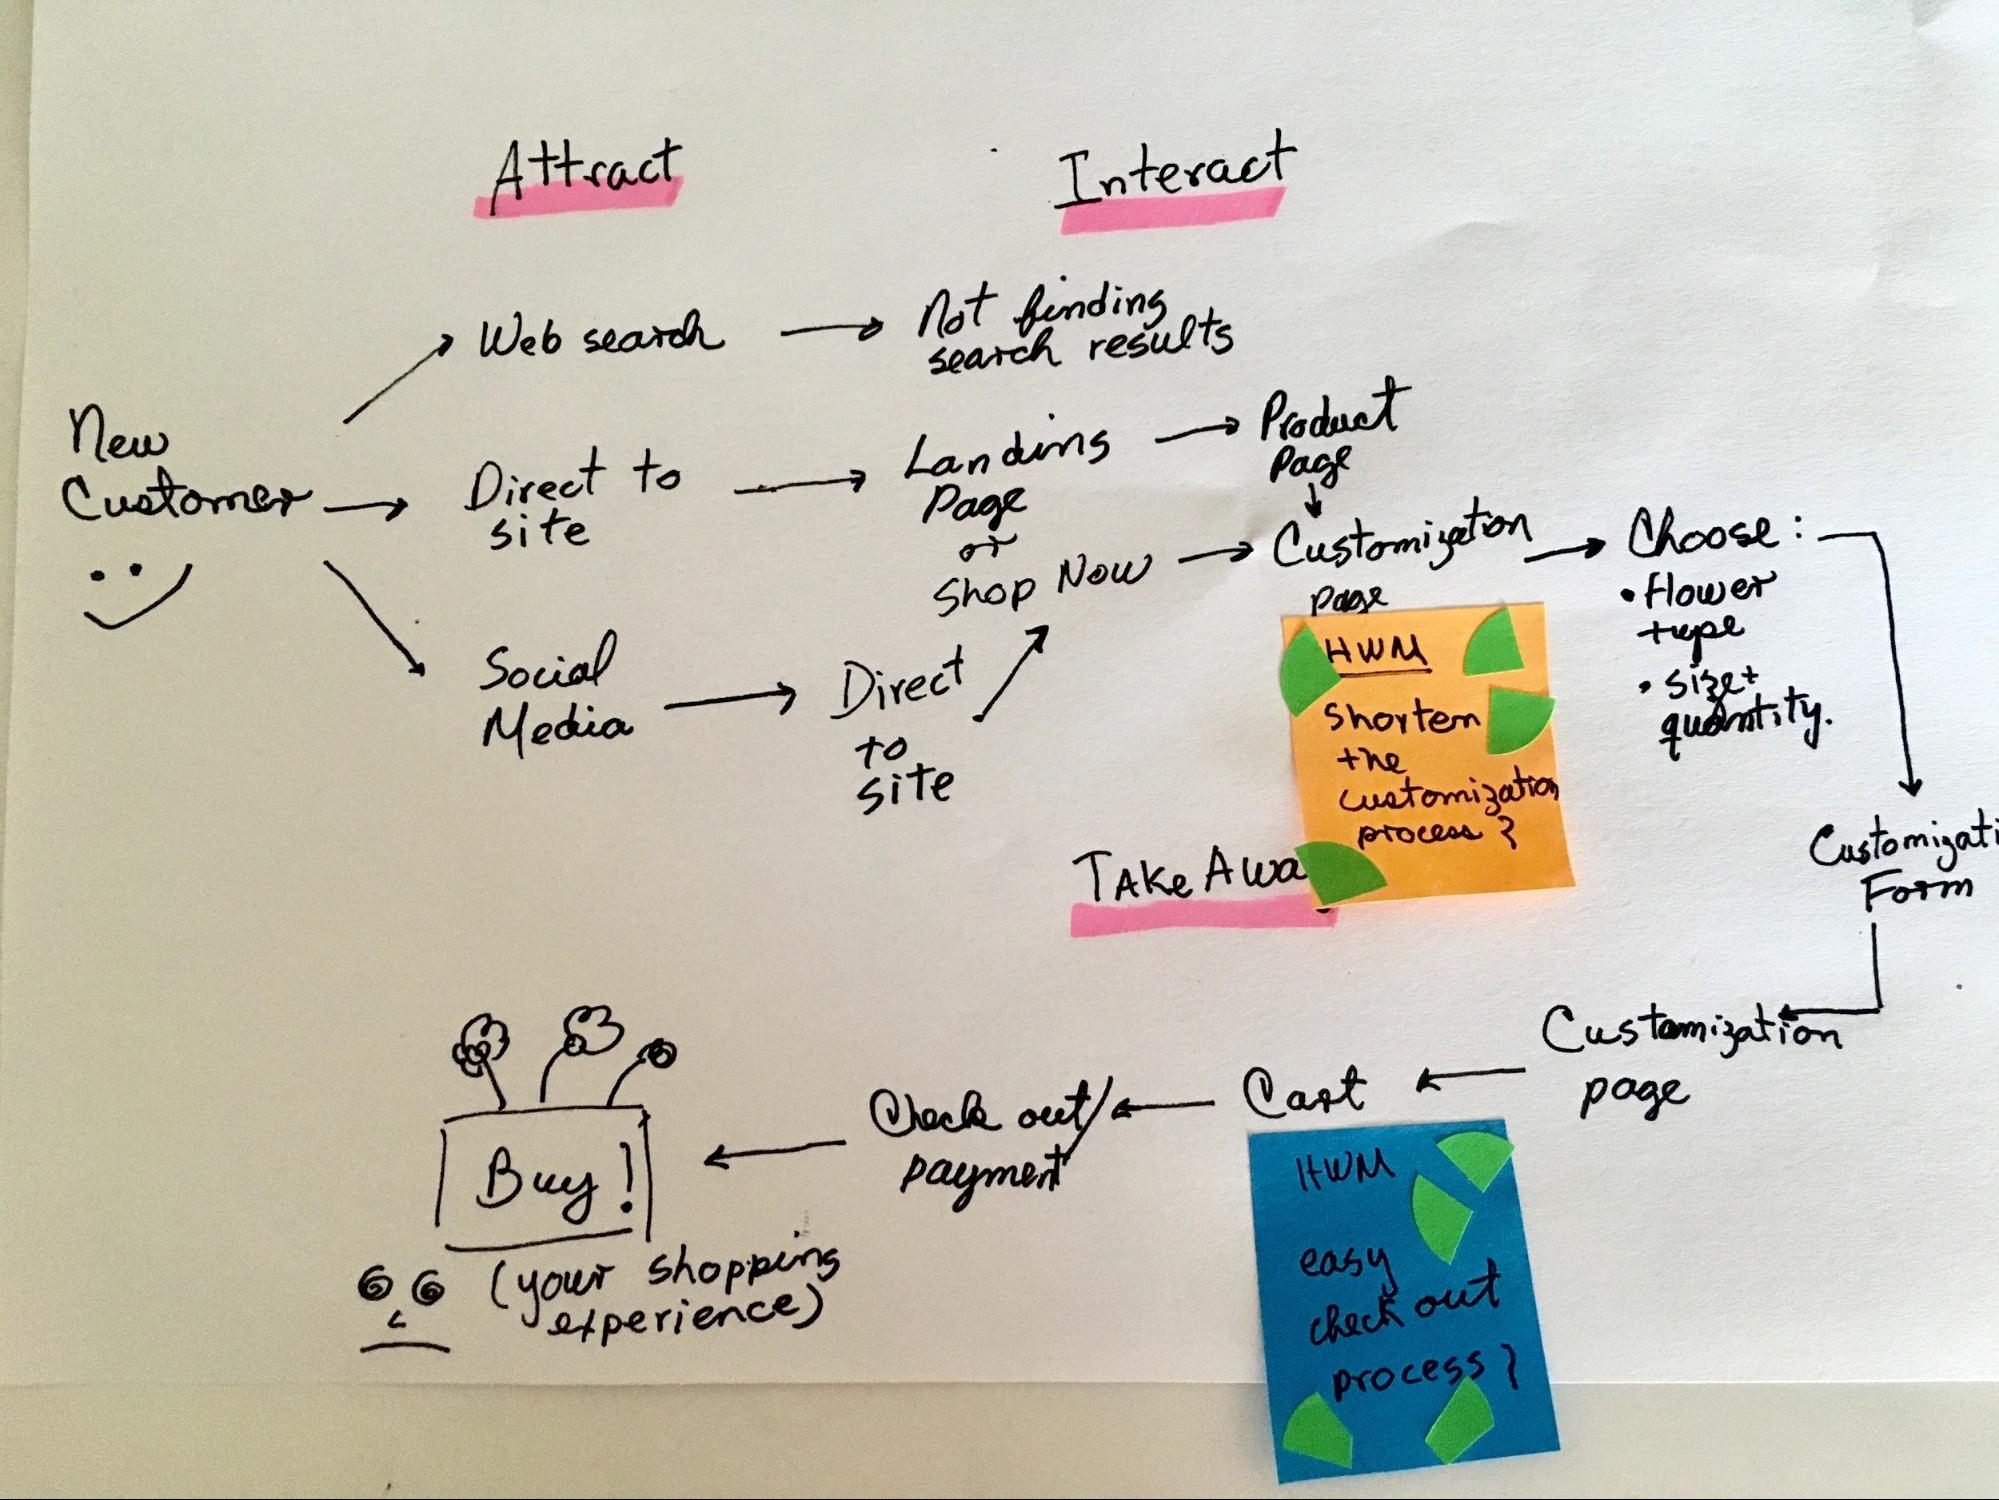 Attract
Interact
New
Customer
Web search
Not finding
search results
Direct to
site
Landing
Page
or
Shop Now
Product
Page
Customization
page
Choose:
• flower
type
• size+
quantity.
Social
Media
Direct
to
site
HWM
Shorten
the
customization
process?
Take Awa
Customizati
Form
Customization
page
Cart
HWM
easy
check out
process?
Check out/
payment
Buy!
(your shopping
experience)